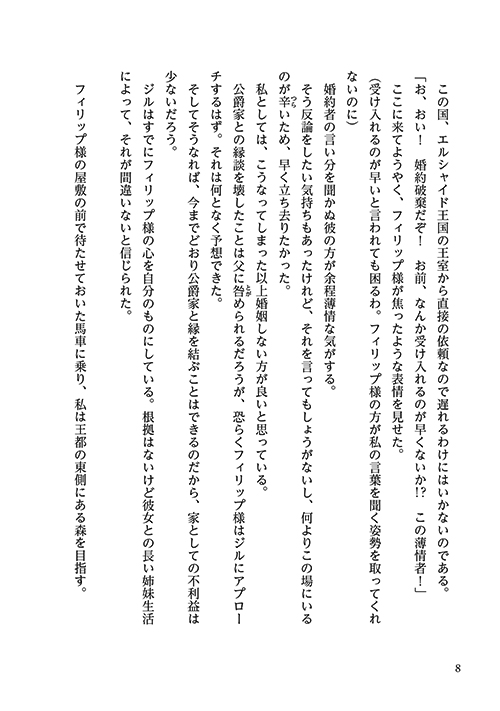 この国、エルシャイド王国の王室から直接の依頼なので遅れるわけにはいかないのである。
「お、おい！　婚約破棄だぞ！　お前、なんか受け入れるのが早くないか!?　この薄情者！」
ここに来てようやく、フィリップ様が焦ったような表情を見せた。
（受け入れるのが早いと言われても困るわ。フィリップ様の方が私の言葉を聞く姿勢を取ってくれ
ないのに）
婚約者の言い分を聞かぬ彼の方が余程薄情な気がする。
そう反論をしたい気持ちもあったけれど、それを言ってもしょうがないし、何よりこの場にいる
のが辛いため、早く立ち去りたかった。
私としては、こうなってしまった以上婚姻しない方が良いと思っている。
公爵家との縁談を壊したことは父に咎められるだろうが、恐らくフィリップ様はジルにアプロー
チするはず。それは何となく予想できた。
そしてそうなれば、今までどおり公爵家と縁を結ぶことはできるのだから、家としての不利益は
少ないだろう。
ジルはすでにフィリップ様の心を自分のものにしている。根拠はないけど彼女との長い姉妹生活
によって、それが間違いないと信じられた。
フィリップ様の屋敷の前で待たせておいた馬車に乗り、私は王都の東側にある森を目指す。
8